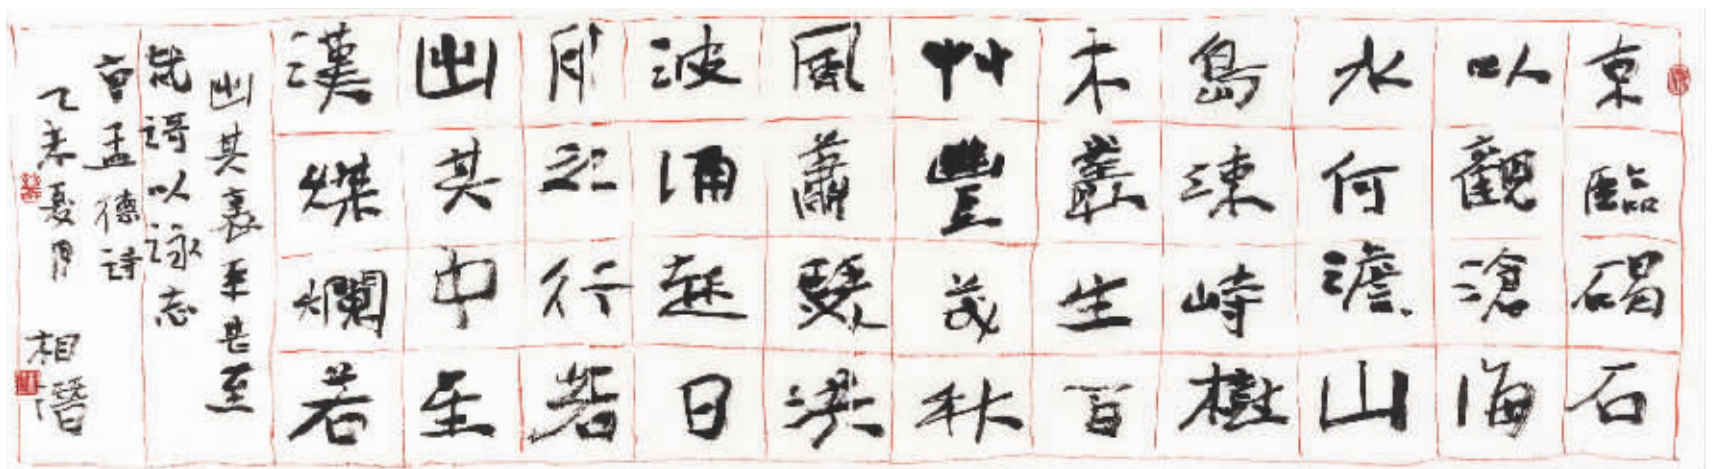 京臨碣石
以觀滄海
水何澹〻山
島竦峙樹
木叢生百
艸豐茂秋
風蕭瑟洪
波涌起日
月之行若
出其中星
漢燦爛若
出其裏幸甚至
哉謌以詠志
曹孟德詩
乙亥夏月 相